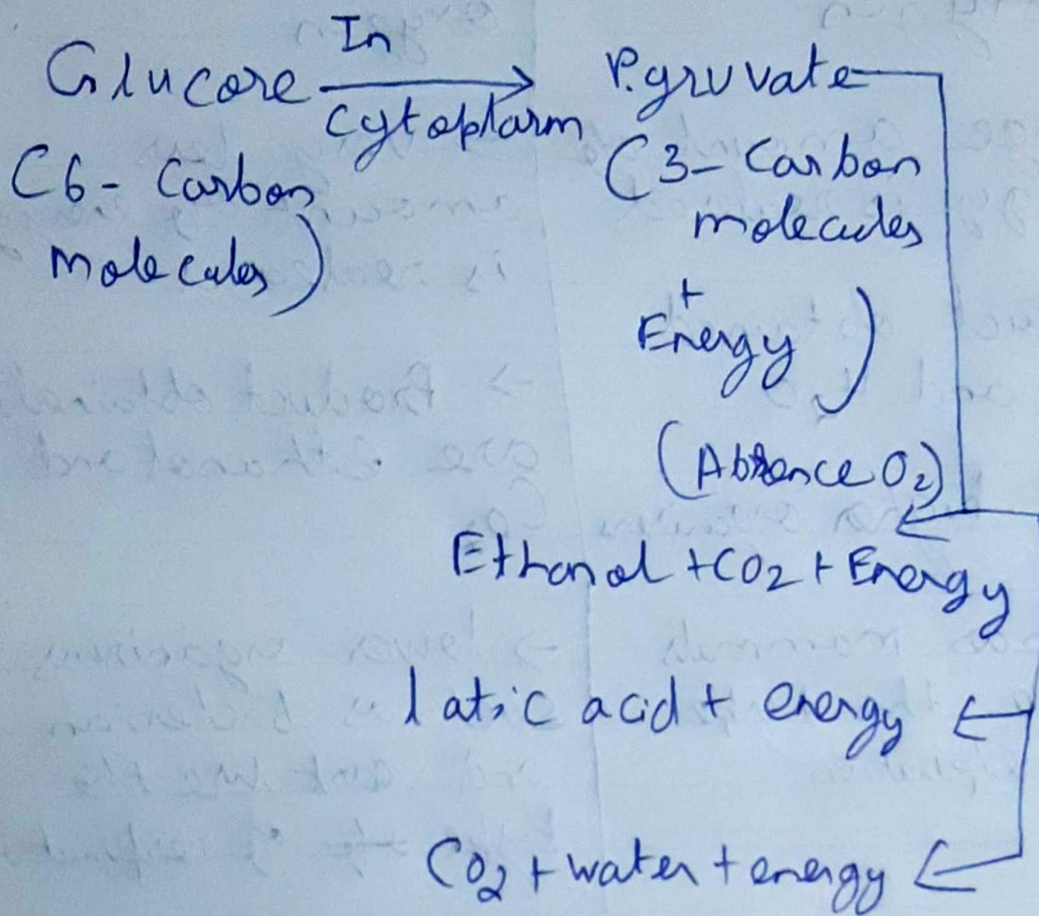 In
Glucose → Pyruvate
cytoplasm
(6- Carbon
molecules)
(3- Carbon
molecules
+
Energy)
(Absence O₂)
Ethanol + CO₂ + Energy
latic acid + energy
CO₂ + water + energy